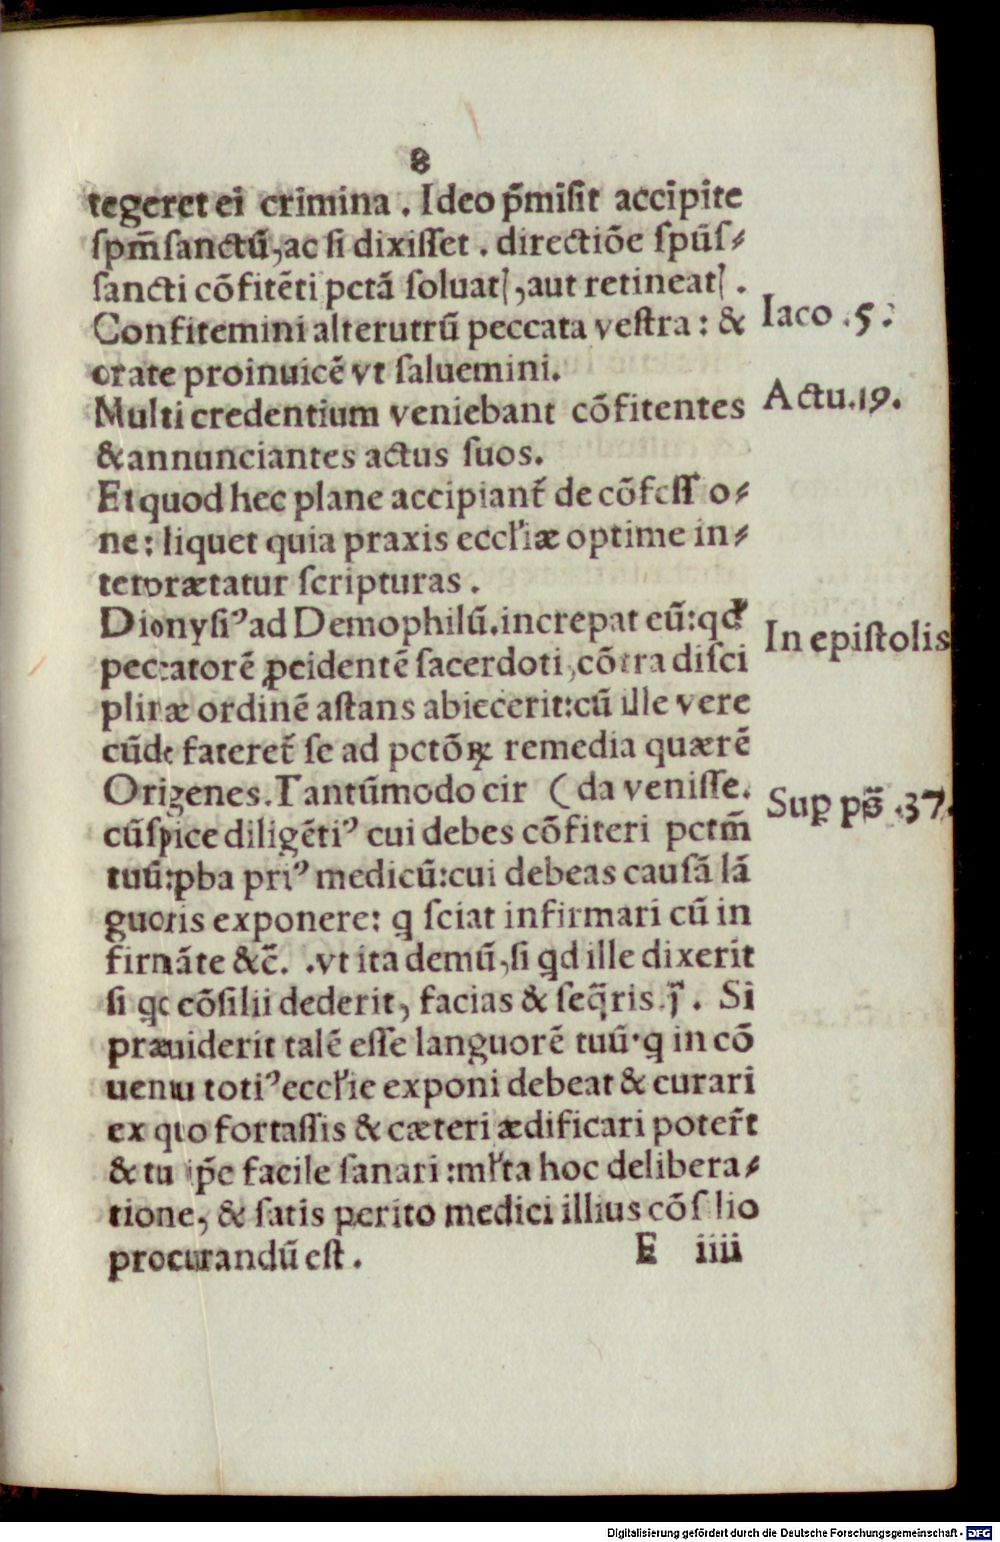 8
tegeret ei crimina . Ideo p̃misit accipite
spm̃sanctũ,ac si dixisset . directiõe spũs⸗
sancti cõfitẽti pctã soluatꝭ,aut retineatꝭ .
Confitemini alterutrũ peccata vestra : & Iaco .5 :
orate proinuicẽ vt saluemini.
Multi credentium veniebant cõfitentes Actu.19.
&annunciantes actus suos.
Et quod hec plane accipiant̃ de cõfessi o⸗
ne : liquet quia praxis eccl'iæ optime in⸗
terprætatur scripturas .
Dionysiꝰ ad Demophilũ.increpat eũ:qd' In epistolis
peccatorẽ ꝓcidentẽ sacerdoti,cõtra disci
plinæ ordinẽ astans abiecerit:cũ ille vere
cũde fateret̃ se ad pctõꝝ remedia quærẽ
Origenes.Tantũmodo cir (da venisse.
cũspice diligẽtiꝰ cui debes cõfiteri pctm̃ Suꝑ ps̃ .37.
tuũ:ꝓba priꝰ medicũ:cui debeas causã lã
guoris exponere: ꝗ sciat infirmari cũ in
firmãte &c̃. .vt ita demũ,si ꝗd ille dixerit
si ꝗd cõsilii dederit, facias & seq̃ris.j̃ . Si
præuiderit talẽ esse languorẽ tuũ·ꝗ in cõ
uentu totiꝰ eccl'ie exponi debeat & curari
ex quo fortassis & cæteri ædificari poter̃t
& tu ip̃e facile sanari :ml'ta hoc delibera⸗
tione, & satis perito medici illius cõsilio
procurandũ est . E iiii
Digitalisierung gefördert durch die Deutsche Forschungsgemeinschaft - DFG